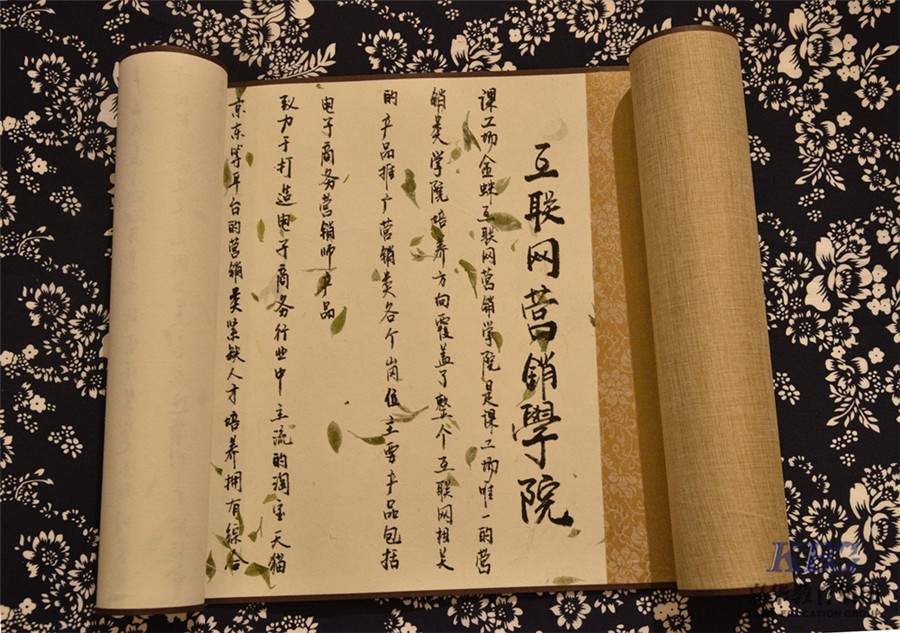 互联网营销學院
课工场金蝉互联网营销学院是课工场唯一的营
销类学院培养方向覆盖了整个互联网相关
的产品推广营销类各个岗位主要产品包括
电子商务营销师单品
致力于打造电子商务行业中主流的淘宝天猫
京东等平台的营销类紧缺人才培养拥有综合
KBC
EDUCATION GROUP